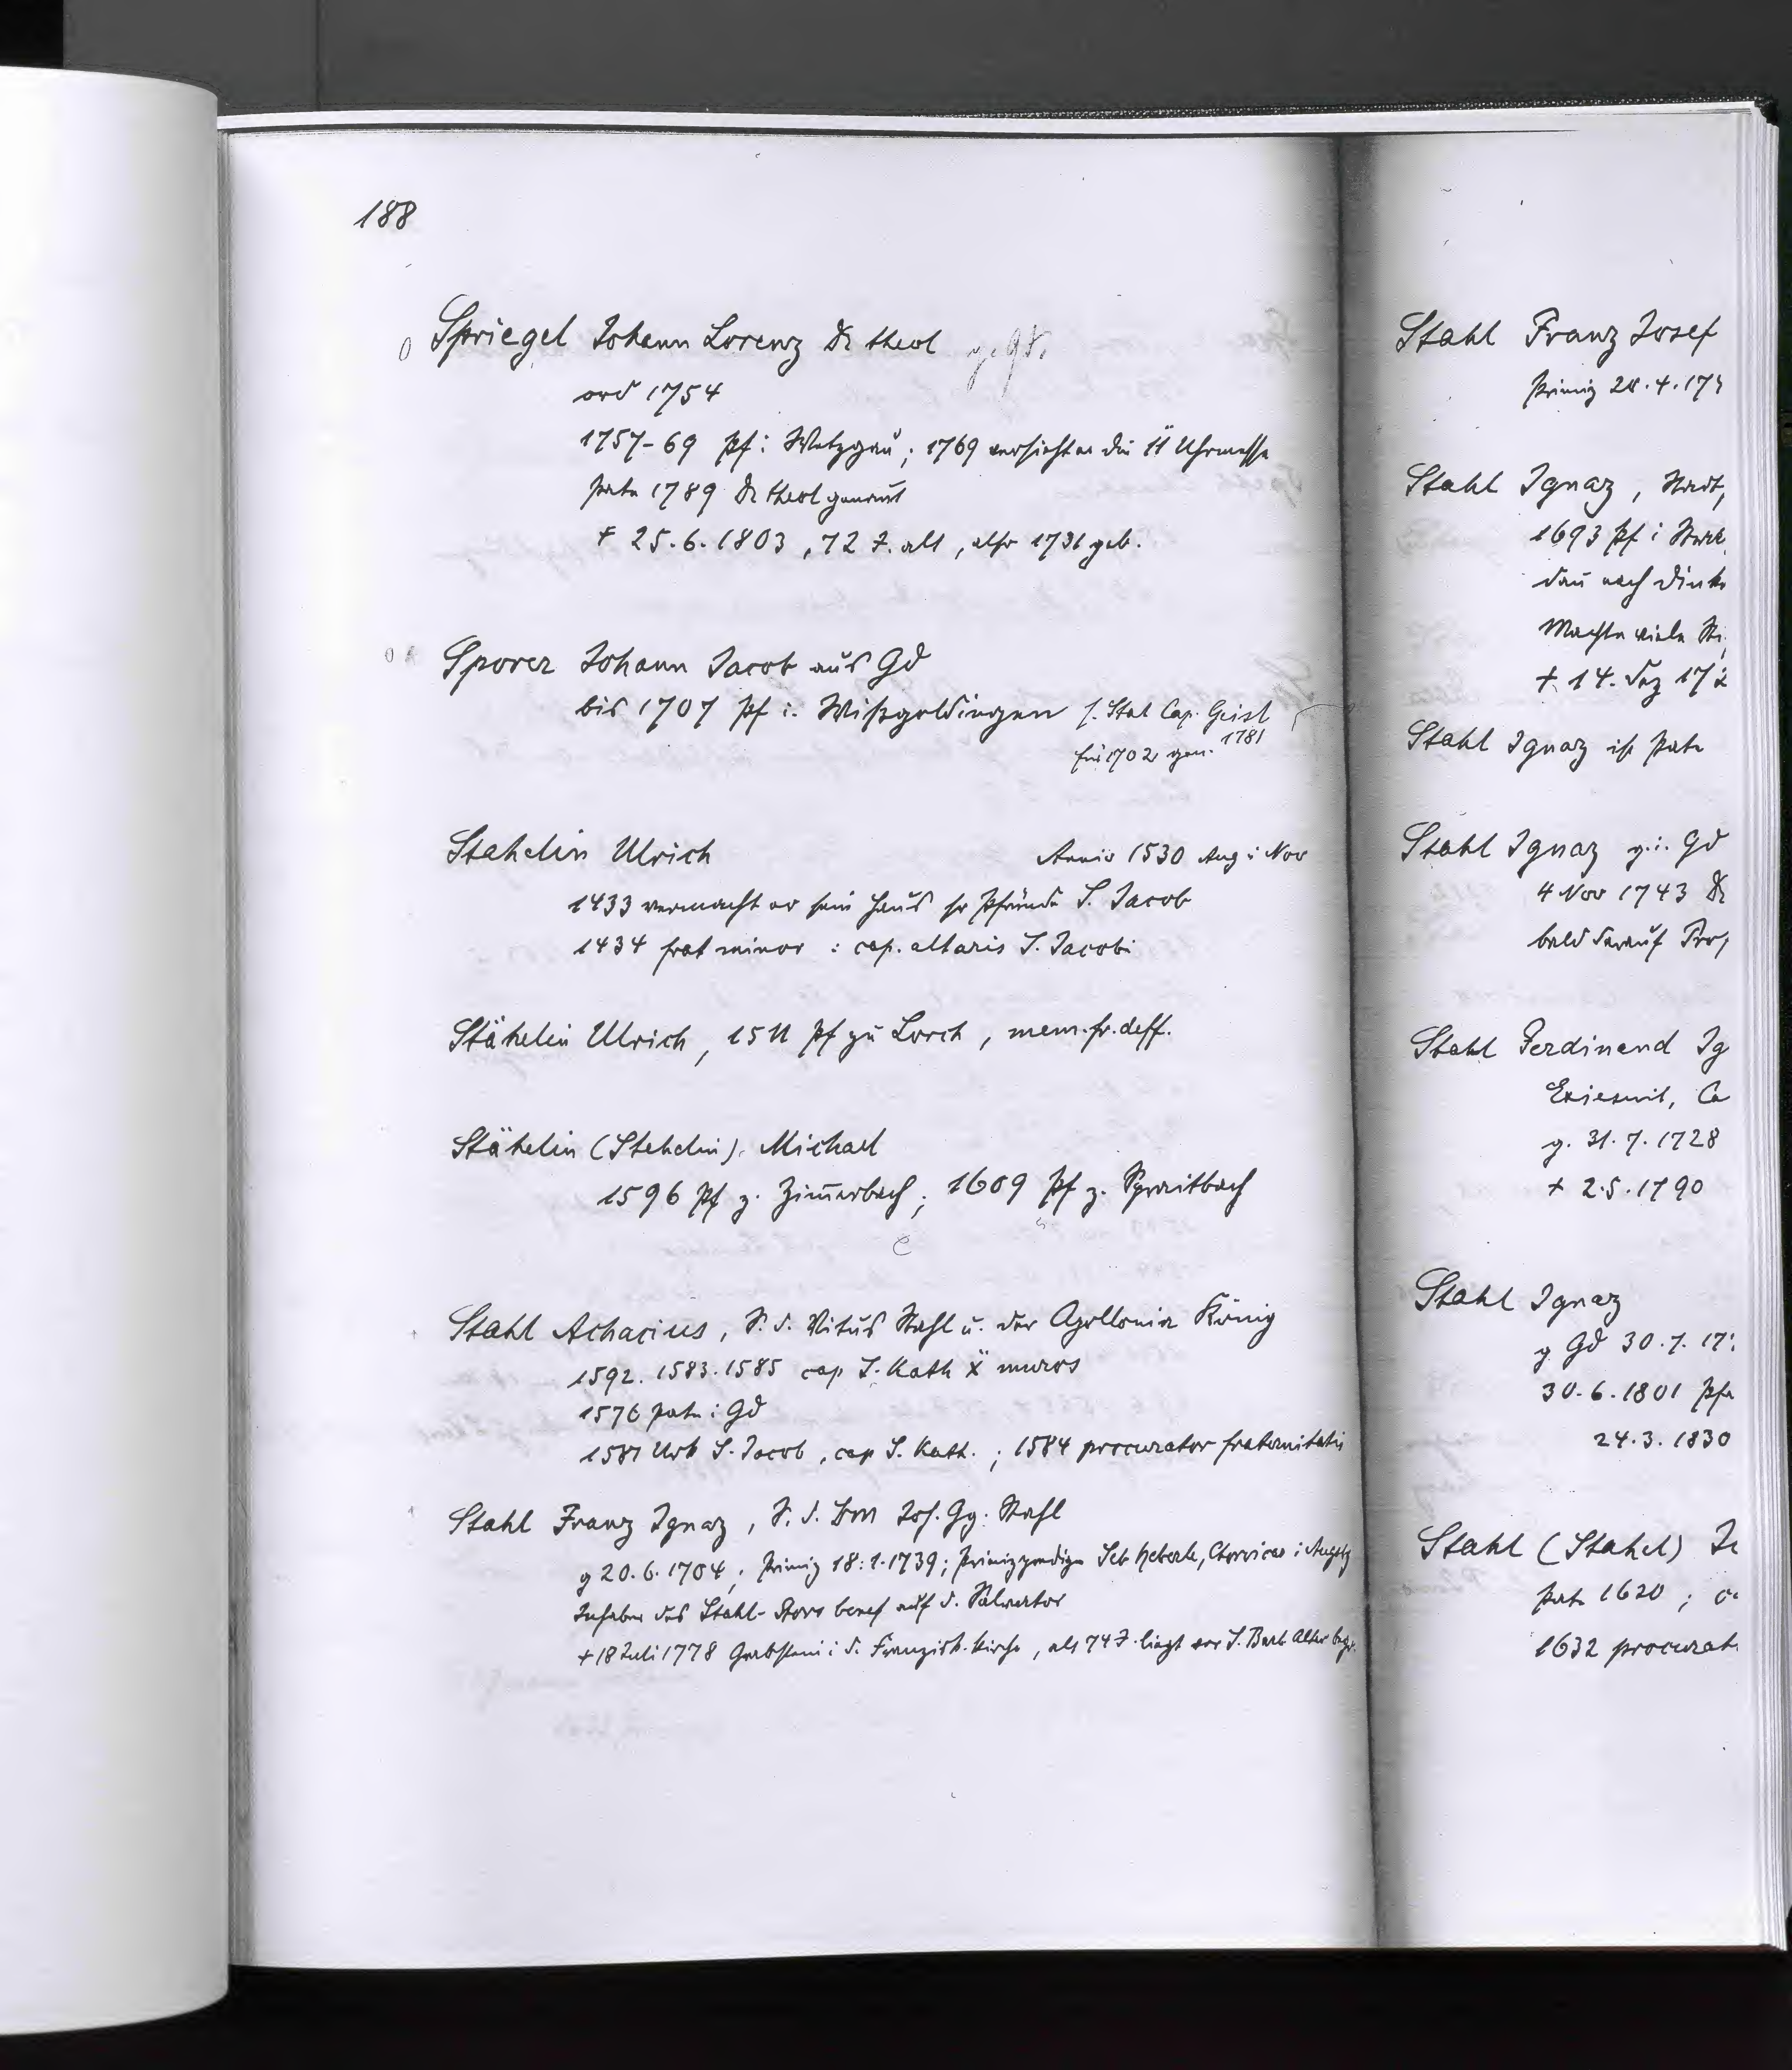 188
Spriegel Johann Lorenz Dr theol
ord 1754
1757-69 Pf i Wetzgau; 1769 versieht er die 11 Uhrmesse
Pate 1789 Dr theol genannt
+ 25.6.1803, 72 J. alt, also 1731 geb.
Sporer Johann Jacob aus Gd
bis 1707 Pf i. Wißgoldingen s. Stat Cap. Geisl
für 1702 gen. 1781
Stahelin Ulrich Anniv 1530 Aug i Nov
1433 vermacht er sein Haus sr Pfründe S. Jacob
1434 frat minor : cap. altaris S. Jacobi
Stähelin Ulrich, 1511 Pf zu Lorch, mem. fr. deff.
Stähelin (Stehelin) Michael
1596 Pf z. Zim̄erbach; 1609 Pf z. Spraitbach
Stahl Achacius, S. d. Vitus Stahl u. der Apollonia König
1592. 1583. 1585 cap S. Kath muros
1576 Pate i Gd
1581 Urk S. Jacob, cap S. Kath.; 1584 procurator fraternitatis
Stahl Franz Ignaz, S. d. Bm Jos. Gg. Stahl
g 20.6.1704; Primiz 18.1.1739; Primizprediger Seb Heberle, Chorvicar i Augsbg
Inhaber des Stahl- benef auf d. Salvator
+ 18 Juli 1778 Grabstein i d. Franzisk. kirche, als 74 J. liegt vor S. Barb Altar begr.
Stahl Franz Josef
Primiz 28.4.17
Stahl Ignaz,
1693 Pf i
dan̄ nach Dink
Machte viele
+ 14. Dez 17
Stahl Ignaz ist Pate
Stahl Ignaz g. i. Gd
4 Nov 1743 Dr
bald darauf
Stahl Ferdinand Ig
Exjesuit, Ca
g. 31.7.1728
+ 2.5.1790
Stahl Ignaz
g Gd 30.7.17
30.6.1801 Pfr
24.3.1830
Stahl (Stahel)
Pate 1620;
1632 procurat